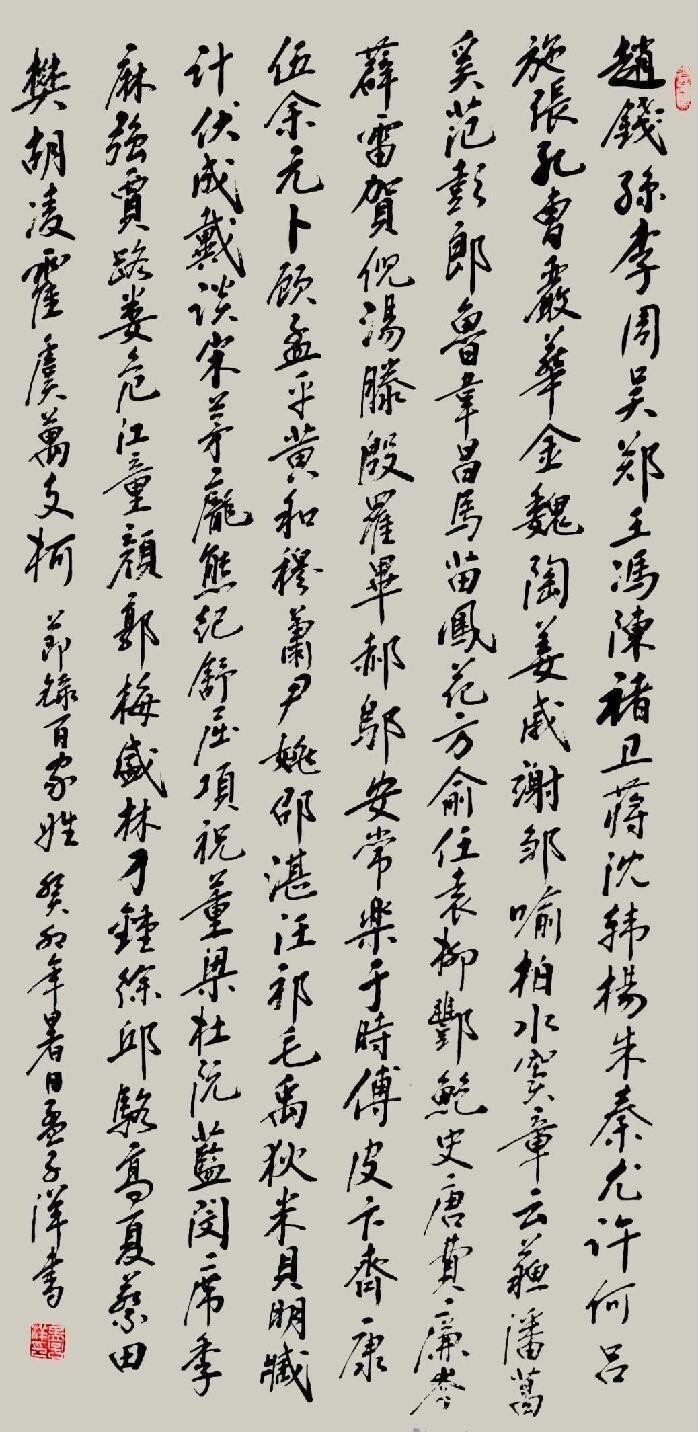 趙錢孫李周吴郑王馮陳褚卫蒋沈韩楊朱秦尤许何吕
施張孔曹嚴華金魏陶姜戚謝邹喻柏水窦章云蘇潘葛
奚范彭郎魯韋昌馬苗鳳花方俞任袁柳酆鲍史唐費廉岑
薛雷賀倪湯滕殷羅畢郝鄔安常楽于時傅皮卞齊康
伍余元卜顾孟平黄和穆蕭尹姚邵湛汪祁毛禹狄米貝明臧
计伏成戴谈宋茅龐熊纪舒屈項祝董梁杜阮藍闵席季
麻強賈路娄危江童顔郭梅盛林刁鍾徐邱駱高夏蔡田
樊胡凌霍虞萬支柯 节録百家姓 癸卯年暑日孟子洋書